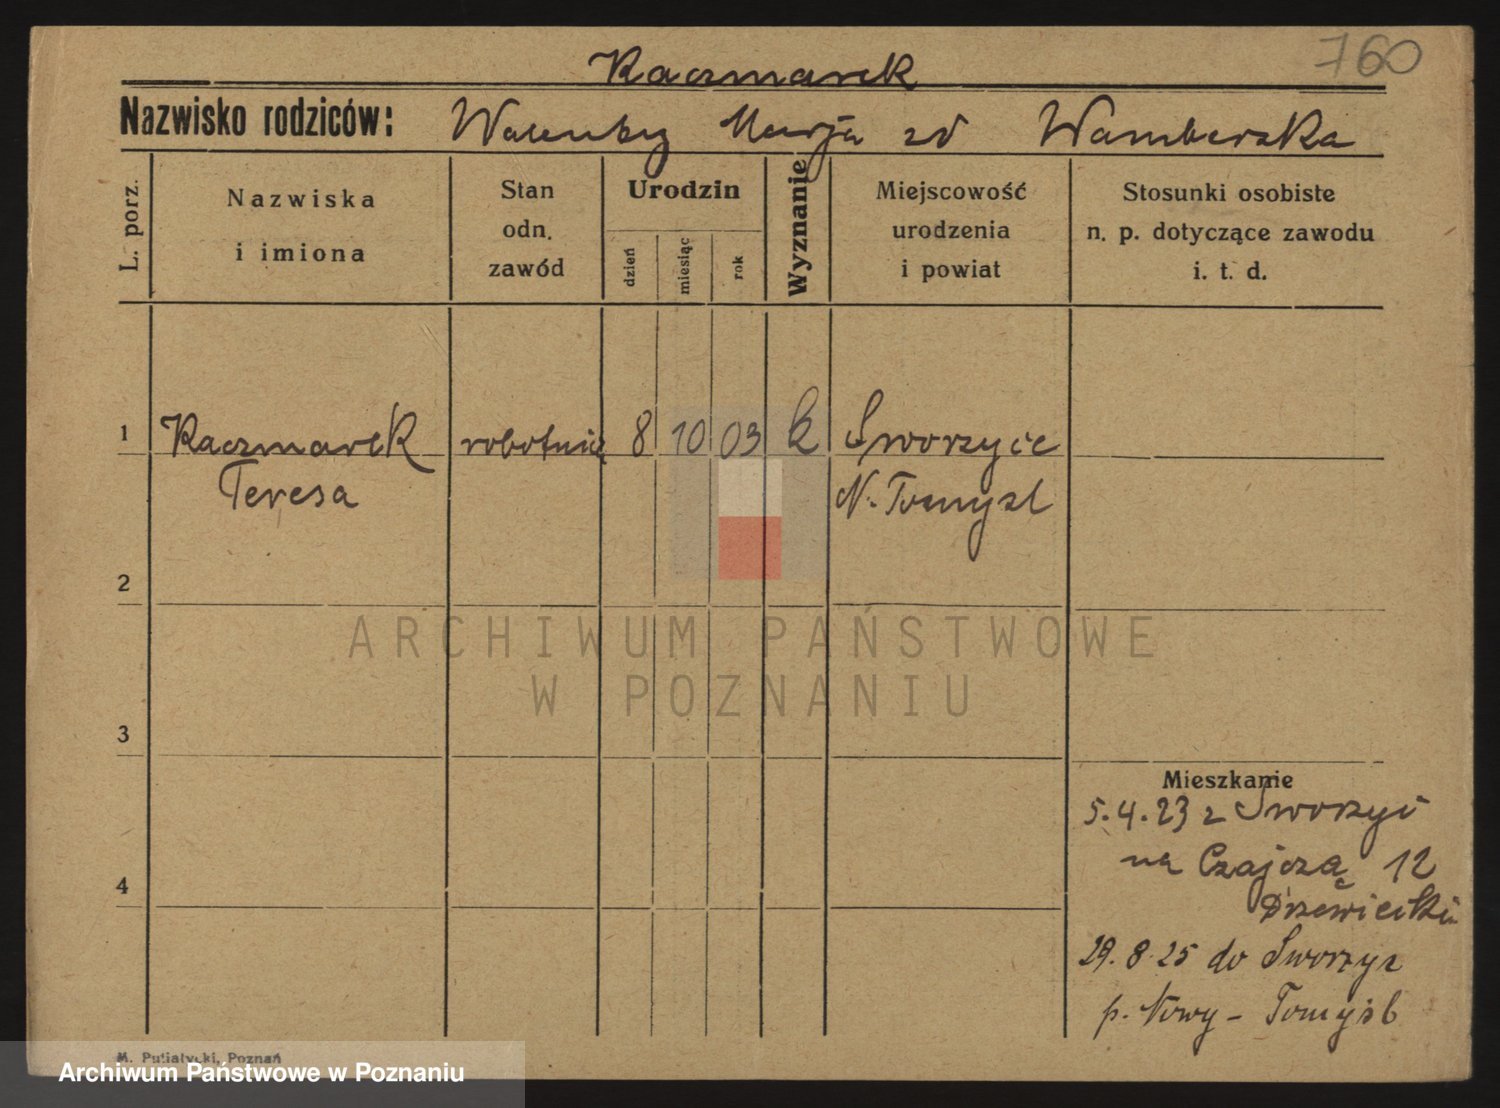 760
Kaczmarek
Nazwisko rodziców: Walenty Marja zd Wamberska
L. porz.
Nazwiska i imiona
Stan odn. zawód
Urodzin
dzień
miesiąc
rok
Wyznanie
Miejscowość urodzenia i powiat
Stosunki osobiste n. p. dotyczące zawodu i. t. d.
1 Kaczmarek robotnic 8 10 03 k Sworzyce
Teresa N. Tomyśl
2
ARCHIWUM PAŃSTWOWE
W POZNANIU
3
Mieszkanie
5.4.23 z Sworzyc
na Czajczą 12
4
29.8.25 do Sworzyc
p. Nowy-Tomyśl
M. Putiatycki, Poznań
Archiwum Państwowe w Poznaniu